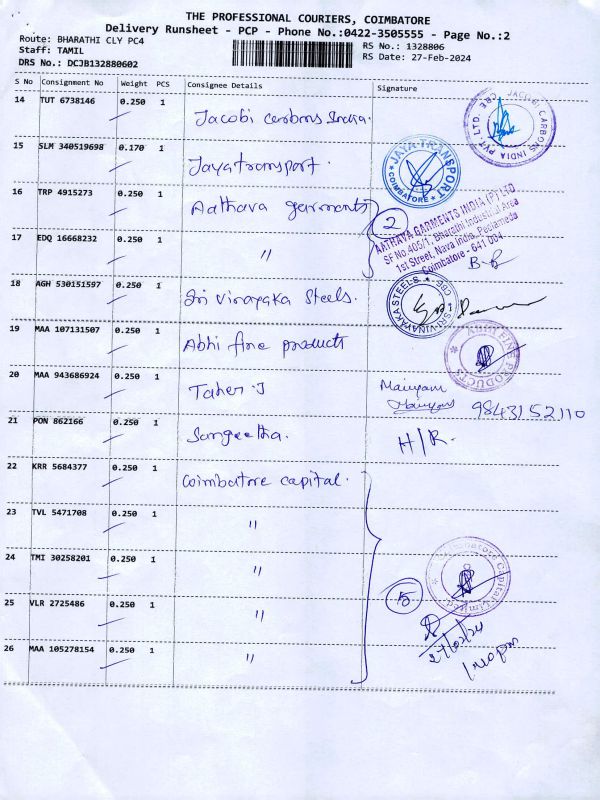 THE PROFESSIONAL COURIERS, COIMBATORE
Delivery Runsheet - PCP - Phone No.:0422-3505555 - Page No.:2
Route: BHARATHI CLY PC4
RS No.: 1328806
Staff: TAMIL
RS Date: 27-Feb-2024
DRS No.: DCJB132880602
S No Consignment No Weight PCS Consignee Details Signature
14 TUT 6738146 0.250 1 Jacobi carbons India.
JACOBI CARBONS INDIA PVT LTD. CBE
15 SLM 340519698 0.170 1 Jayatransport.
JAYA TRANSPORT
COIMBATORE
16 TRP 4915273 0.250 1 Aathava garments
2
AATHAVA GARMENTS INDIA (P) LTD
SF No.405/1, Bharathi Industrial Area
1st Street, Nava India, Peelamedu
Coimbatore - 641 004
17 EDQ 16668232 0.250 1 "
18 AGH 530151597 0.250 1 Sri Vinayaka Steels.
SRI-VINAYAKA STEELS CBE
19 MAA 107131507 0.250 1 Abhi fine products
ABHI FINE PRODUCTS
20 MAA 943686924 0.250 1 Taher.J
9843152110
21 PON 862166 0.250 1 Sangeetha.
H/R.
22 KRR 5684377 0.250 1 Coimbatore capital.
23 TVL 5471708 0.250 1 "
24 TMI 30258201 0.250 1 "
Coimbatore Capital Limited
25 VLR 2725486 0.250 1 "
5
27/02/24
26 MAA 105278154 0.250 1 "
1.40 pm